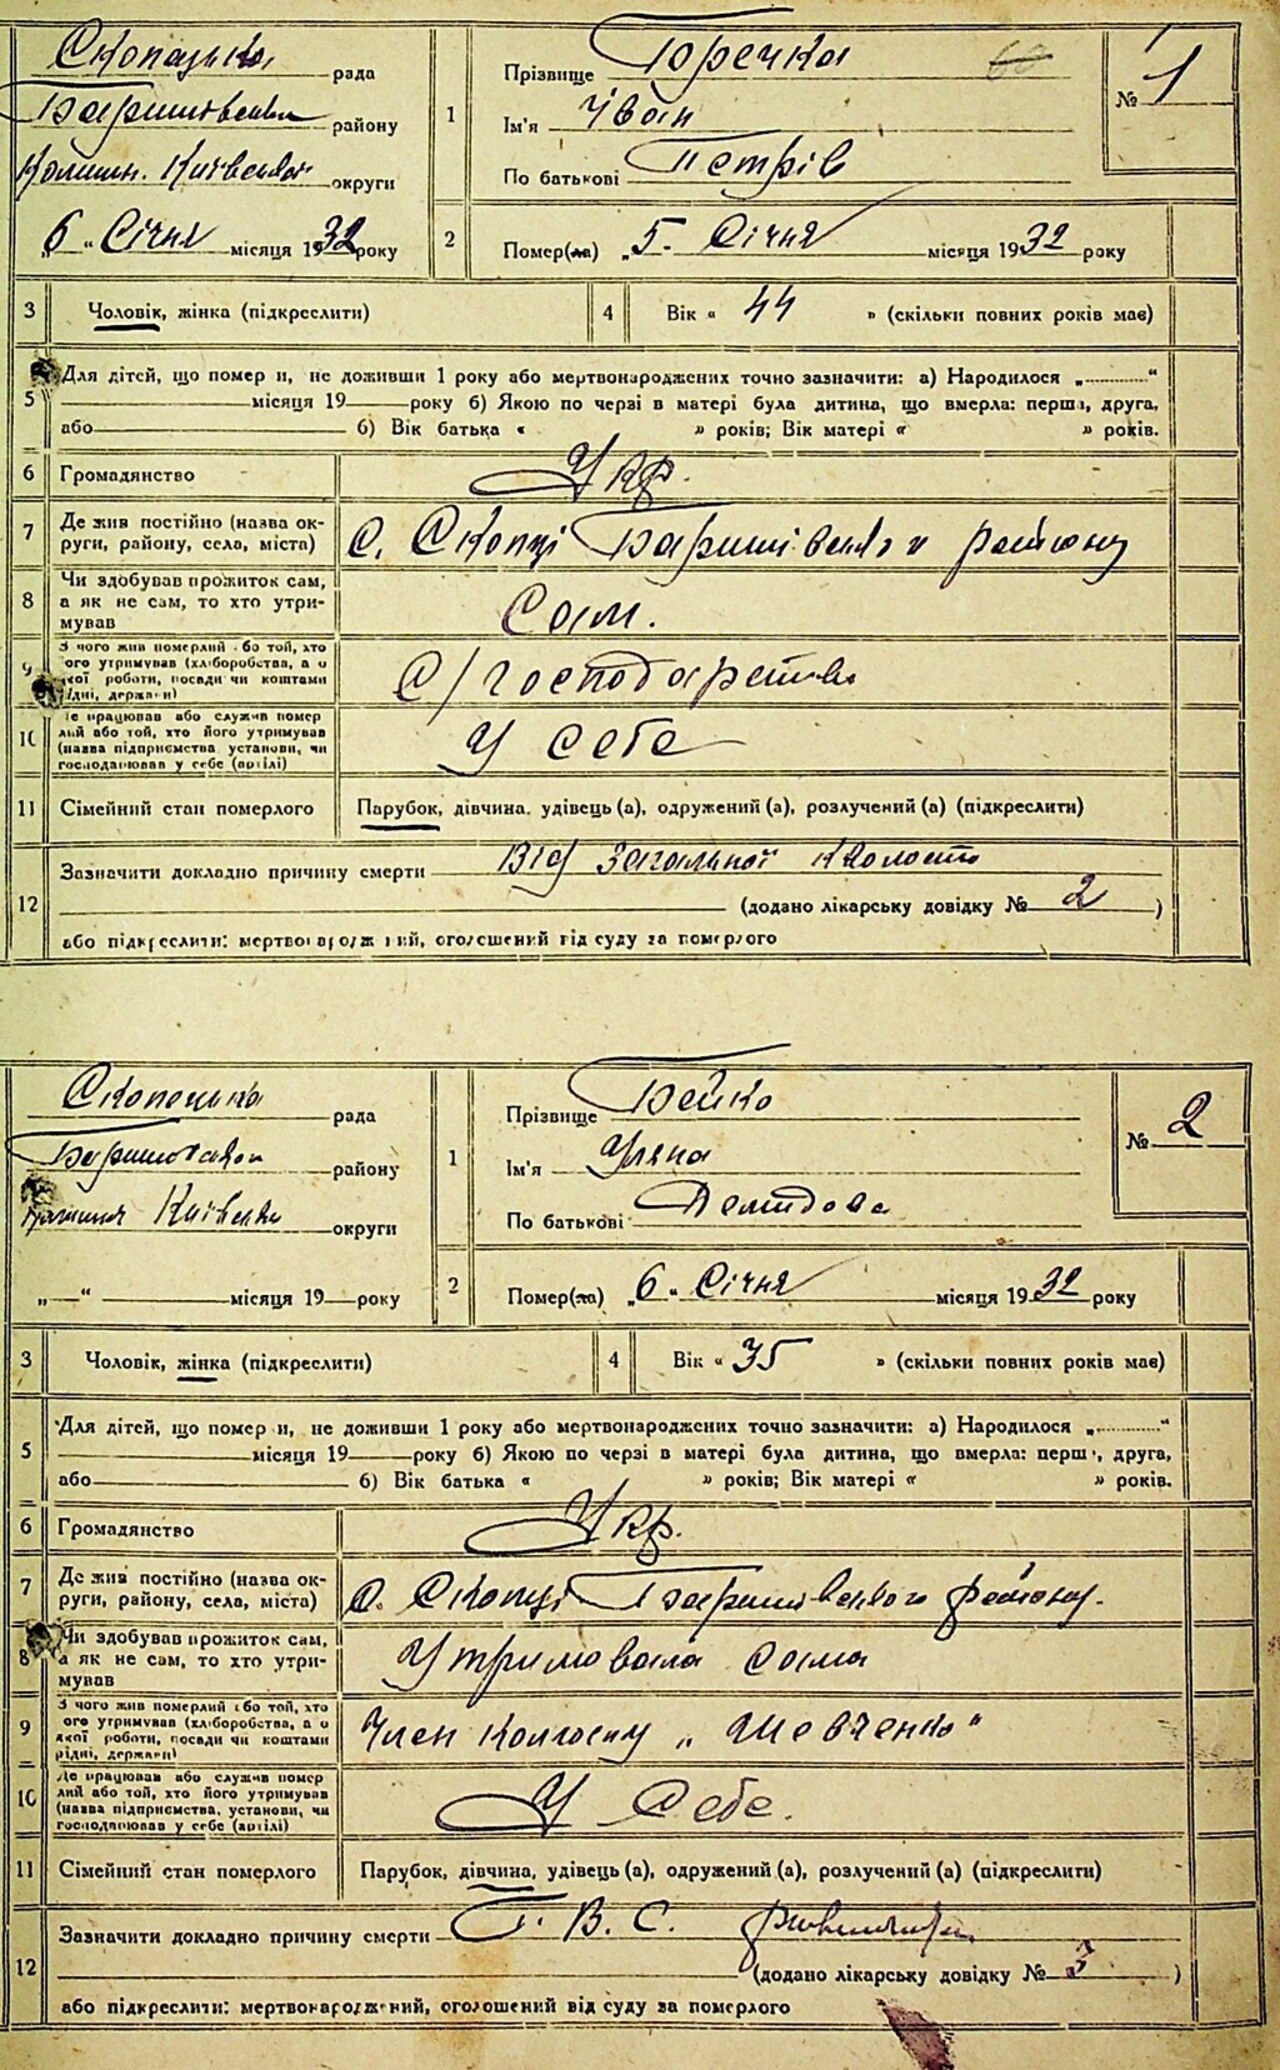 Скопецька рада
Баришівськ району
Колишн. Київської округи
„6" Січня місяця 1932 року
1
Прізвище Гречка
Ім'я Іван
По батькові Петрів
№ 1
2
Помер(ла) „5" Січня місяця 1932 року
3 Чоловік, жінка (підкреслити)
4 Вік « 44 » (скільки повних років має)
5 Для дітей, що помер и, не доживши 1 року або мертвонароджених точно зазначити: а) Народилося „ “
місяця 19 року б) Якою по черзі в матері була дитина, що вмерла: перша, друга,
або б) Вік батька « » років; Вік матері « » років.
6 Громадянство Укр.
7 Де жив постійно (назва ок-
руги, району, села, міста) С. Скопці Баришівського району
8 Чи здобував прожиток сам,
а як не сам, то хто утри-
мував Сам.
9 З чого жив померлий або той, хто
ого утримував (хліборобства, а о
якої роботи, посади чи коштами
рідні, держави) С/господарства
10 Де працював або служив помер
лий або той, хто його утримував
(назва підприємства установи, чи
господарював у себе (артілі) У себе
11 Сімейний стан померлого Парубок, дівчина, удівець (а), одружений (а), розлучений (а) (підкреслити)
12 Зазначити докладно причину смерти Від загальної кволости
(додано лікарську довідку № 2 )
або підкреслити: мертвонароджений, оголошений від суду за померлого
Скопецька рада
району
Київської округи
„ “ місяця 19 року
1
Прізвище Бейко
Ім'я Уляна
По батькові Демидова
№ 2
2
Помер(ла) „6" Січня місяця 1932 року
3 Чоловік, жінка (підкреслити)
4 Вік « 35 » (скільки повних років має)
5 Для дітей, що помер и, не доживши 1 року або мертвонароджених точно зазначити: а) Народилося „ “
місяця 19 року б) Якою по черзі в матері була дитина, що вмерла: перш , друга,
або б) Вік батька « » років; Вік матері « » років.
6 Громадянство Укр.
7 Де жив постійно (назва ок-
руги, району, села, міста) С. Скопці Баришівського району.
8 Чи здобував прожиток сам,
а як не сам, то хто утри-
мував Утримовала сама
9 З чого жив померлий або той, хто
ого утримував (хліборобства, а о
якої роботи, посади чи коштами
рідні, держави) Член колгоспу „Шевченко"
10 Де працював або служив помер
лий або той, хто його утримував
(назва підприємства, установи, чи
господарював у себе (артілі) У себе.
11 Сімейний стан померлого Парубок, дівчина, удівець (а), одружений (а), розлучений (а) (підкреслити)
12 Зазначити докладно причину смерти Т. В. С.
(додано лікарську довідку № 3 )
або підкреслити: мертвонароджений, оголошений від суду за померлого